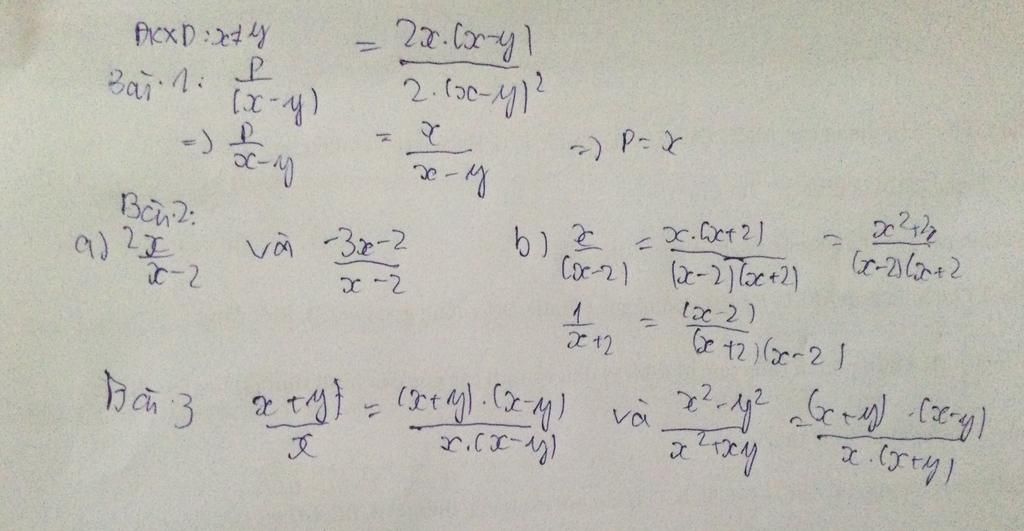 ĐKXĐ: x≠y
Bài 1: P/(x-y) = 2x.(x-y)/2.(x-y)²
=) P/x-y = x/x-y =) P = x
Bài 2:
a) 2x/x-2 và -3x-2/x-2 b) x/(x-2) = x.(x+2)/(x-2)(x+2) = x²+2x/(x-2)(x+2
1/x+2 = (x-2)/(x+2)(x-2)
Bài 3 x+y/x = (x+y).(x-y)/x.(x-y) và x²-y²/x²+xy = (x+y).(x-y)/x.(x+y)